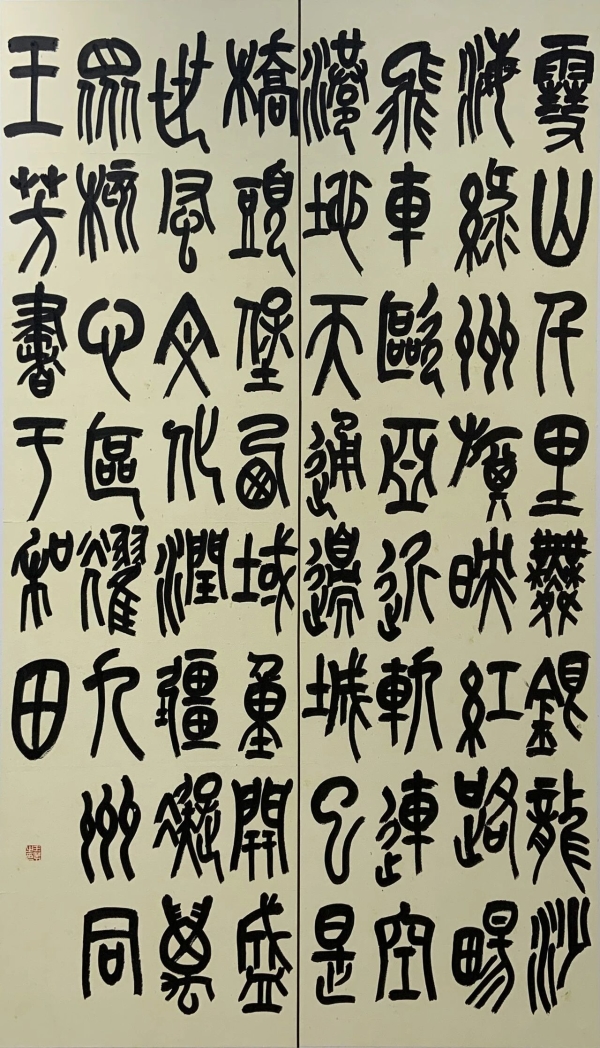 雪山千里舞銀龍沙
海綠州旗映紅路暢
飛車歐亞近軌連空
港地天通邊城已是
橋頭堡西域重開盛
世風文化潤疆凝萬
眾核心區耀九州同
王芳書于和田